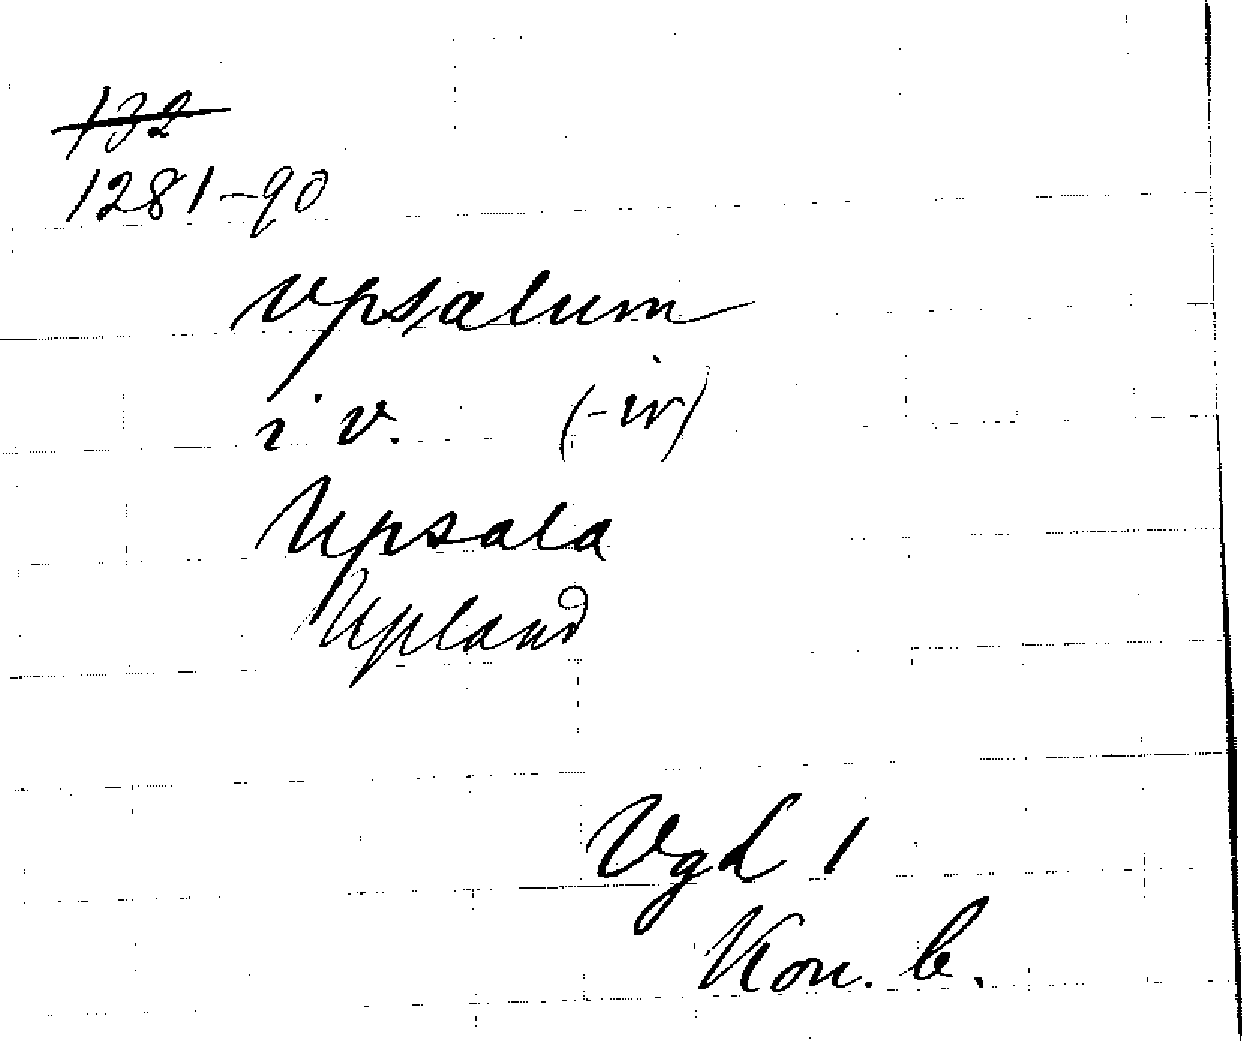 132
1281-90
Upsalum
i v. (-ir)
Upsala
Upland
Vgl 1
Kon. b.